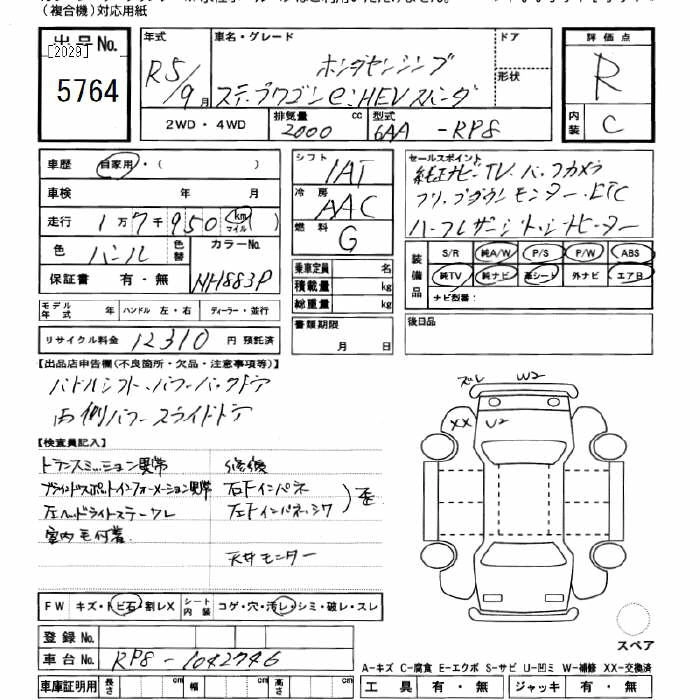 （複合機）対応用紙
出品No.
[2029]
5764
年式 車名・グレード ドア
R5/9月 ホンダセンシング 形状
ステップワゴン e:HEV スパーダ
2WD・4WD 排気量 2000 cc 型式 6AA -RP8
評価点 R
内装 C
車歴 自家用・( )
車検 年 月
走行 1万7千950 (km マイル)
色 パール 色替 カラーNo. NH883P
保証書 有・無
モデル年式 年 ハンドル 左・右 ディーラー・並行
リサイクル料金 12310 円 預託済
シフト IAT
冷房 AAC
燃料 G
乗車定員 名
積載量 kg
総重量 kg
書類期限 月 日
セールスポイント
純正ナビ・TV・バックカメラ
フリップダウンモニター・ETC
ハーフレザーシート・シートヒーター
装備品 S/R 純A/W P/S P/W ABS
純TV 純ナビ 革シート 外ナビ エアB
ナビ型番：
後日品
【出品店申告欄(不良箇所・欠品・注意事項等)】
パドルシフト、パワーバックドア
両側パワースライドドア
【検査員記入】
トランスミッション異常 修復
ブラインドスポットインフォメーション異常 右Fインパネ
左ヘッドライトステークレ 左Fインパネ、シワ ) 歪
室内毛付着
天井モニター
ズレ W2
XX U2
FW キズ・トビ石・割レX シート内装 コゲ・穴・汚レ・シミ・破レ・スレ
登録No.
車台No. RP8-1042746
車庫証明用 長さ cm 幅 cm 高さ cm
スペア
A-キズ C-腐食 E-エクボ S-サビ U-凹ミ W-補修 XX-交換済
工具 有・無 ジャッキ 有・無